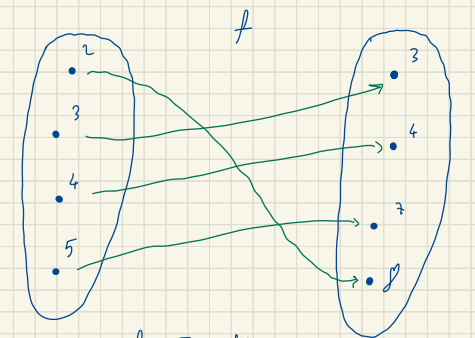 f
2
3
4
5
3
4
7
8